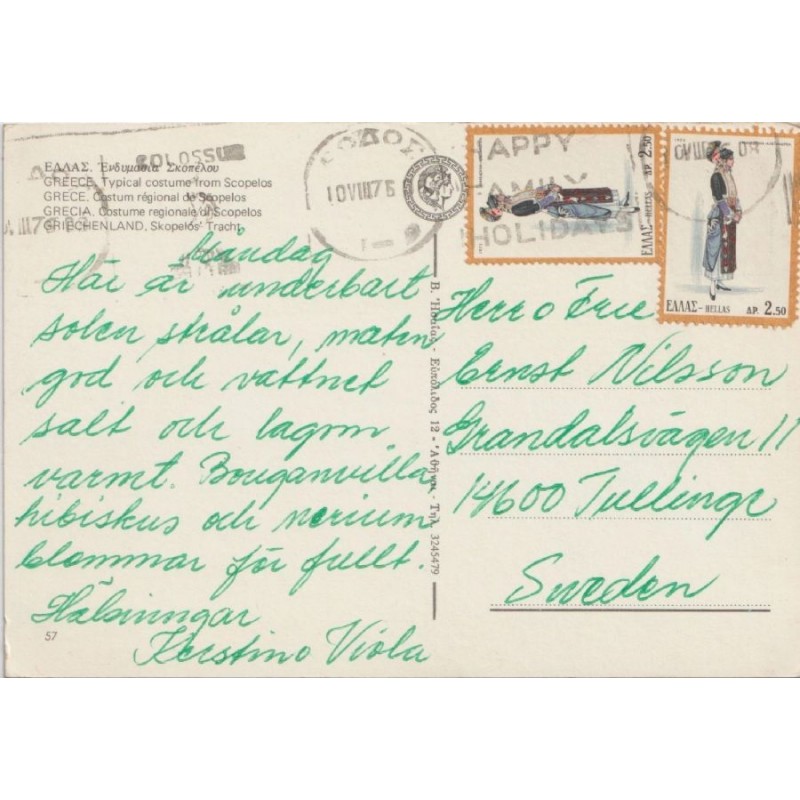 ΕΛΛΑΣ. Ἐνδυμασία Σκοπέλου
GREECE. Typical costume from Scopelos
GRECE. Costum régional de Scopelos
GRECIA. Costume regionale di Scopelos
GRIECHENLAND, Skopelos' Tracht
COLOSSUS
ΡΟΔΟΣ
10VIII76
HAPPY
FAMILY
HOLIDAYS
ΕΛΛΑΣ-HELLAS ΔΡ. 2.50
ΕΛΛΑΣ-HELLAS ΔΡ. 2.50
Måndag
Här är underbart
solen strålar, maten
god och vattnet
salt och lagom
varmt. Bouganvilla
hibiskus och nerium
blommar för fullt.
Hälsningar
Kerstin o Viola
57
Β. Ἡσαΐας - Εὐπόλιδος 12 - Ἀθῆναι - Τηλ. 3245479
Herr o Fru
Ernst Nilsson
Grandalsvägen 11
14600 Tullinge
Sweden